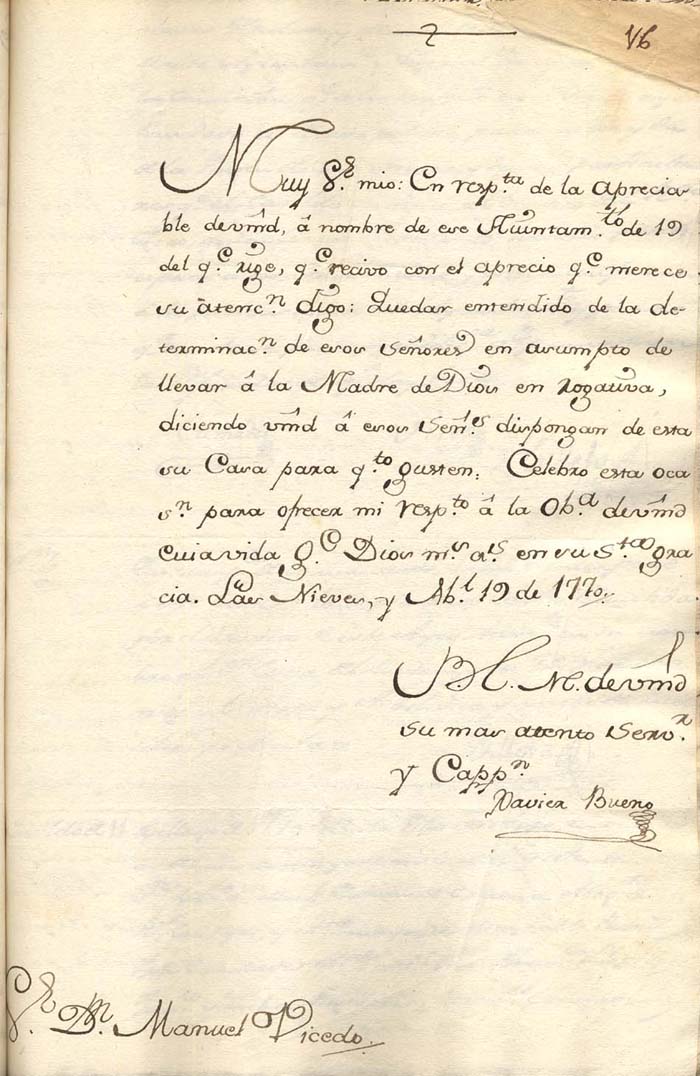 V6
Muy Sr. mio: En resp.ta de la aprecia-
ble devmd, â nombre de ese Aiuntam.to de 19
del q.e rige, q.e recivo con el aprecio q.e merece
su atenc.n digo: Quedar entendido de la de-
terminac.n de esos Señores en asumpto de
llevar â la Madre de Dios en rogativa,
diciendo vmd â esos Señ.s dispongan de esta
su Casa para q.to gusten: Celebro esta oca
s.n para ofrecer mi resp.to â la Ob.a devmd
cuia vida g.e Dios m.s a.s en su S.ta gra
cia. Las Nieves, y Ab.l 19 de 1770.
B. L. M. devmd
su mas atento Serv.r
y Capp.n
Xavier Bueno
Sr. Dn. Manuel Vicedo.